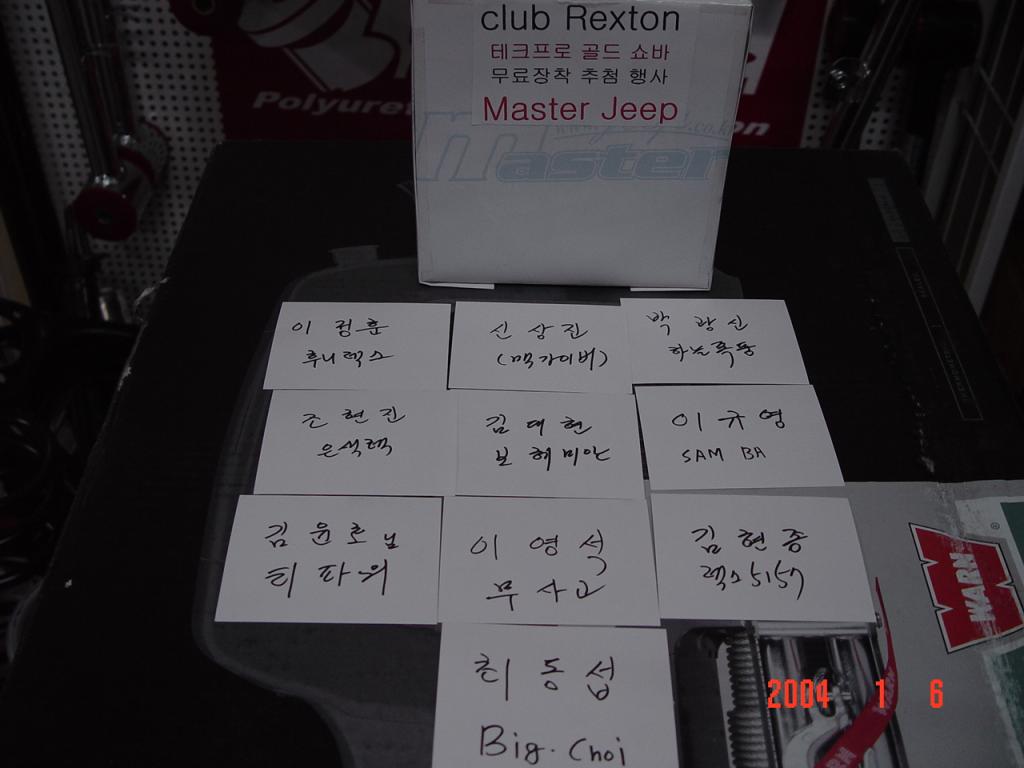 club Rexton
테크프로 골드 쇼바
무료장착 추첨 행사
Master Jeep
Master
Polyuret
on
이 정 훈
후니렉스
신 상 진
(맥가이버)
박 광 신
하늘폭풍
조 현 진
은색렉
김 대 현
보헤미안
이 규 영
SAM BA
김 윤 호 님
티 파 위
이 영 석
무 사 고
김 현 종
렉스5157
최 동 섭
Big. Choi
WARN
2004 1 6